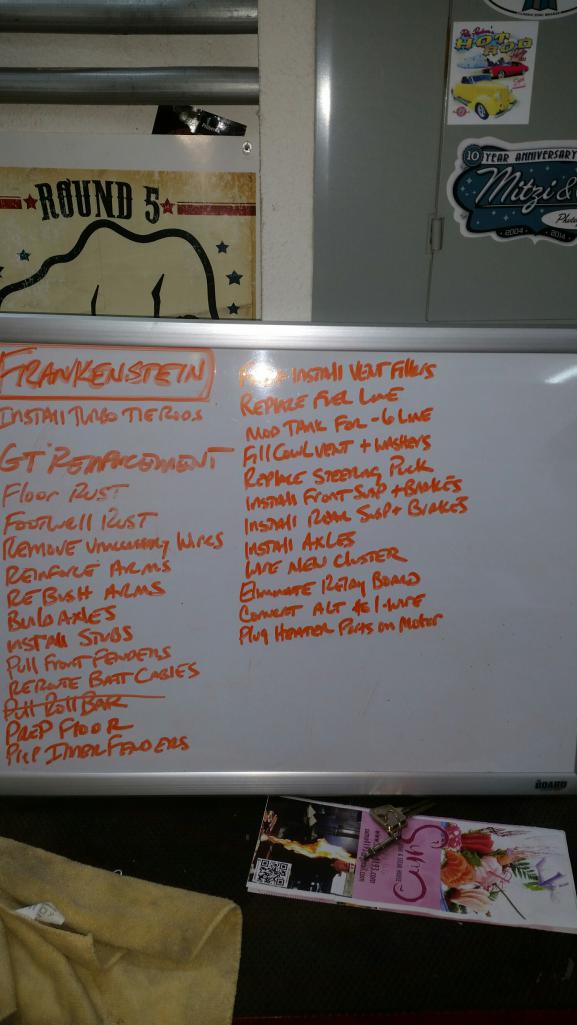 HOT ROD
10 YEAR ANNIVERSARY
Mitzi &
Photo
2004 • 2014
ROUND 5
FRANKENSTEIN
INSTALL TURBO TIE RODS
GT
FLOOR RUST
FOOTWELL RUST
REMOVE WIRES
REINFORCE ARMS
RE BUSH ARMS
BUILD AXLES
INSTALL STUBS
PULL FRONT FENDERS
REROUTE BATT CABLES
PULL ROLL BAR
PREP FLOOR
PREP INNER FENDERS
INSTALL VENT FILLERS
REPLACE FUEL LINE
MOD TANK FOR -6 LINE
FILL COWL VENT + WASHERS
REPLACE STEERING PUCK
INSTALL FRONT SUSP + BRAKES
INSTALL REAR SUSP + BRAKES
INSTALL AXLES
WIRE NEW CLUSTER
ELIMINATE RELAY BOARD
CONVERT ALT 1-WIRE
PLUG HEATER PORTS ON MOTOR
BOARD